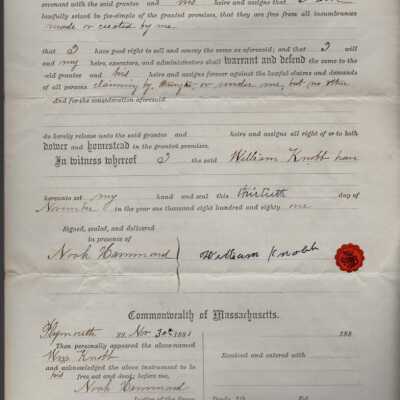 covenant with the said grantee and his heirs and assigns that I am
lawfully seized in fee-simple of the granted premises, that they are free from all incumbrances
made or created by me.
that I have good right to sell and convey the same as aforesaid; and that I will
and my heirs, executors, and administrators shall warrant and defend the same to the
said grantee and his heirs and assigns forever against the lawful claims and demands
of all persons claiming by, through or under me, but no other
And for the consideration aforesaid
do hereby release unto the said grantee and heirs and assigns all right of or to both
dower and homestead in the granted premises.
In witness whereof I the said William Knobb have
hereunto set my hand and seal this thirtieth day of
November in the year one thousand eight hundred and eighty one
Signed, sealed, and delivered
in presence of
Noah Hammond
William Knobb
Commonwealth of Massachusetts.
Plymouth ss. Nov 30th 1881 188
Then personally appeared the above-named
Wm Knobb
Received and entered with
and acknowledged the above instrument to be
his free act and deed; before me,
Noah Hammond